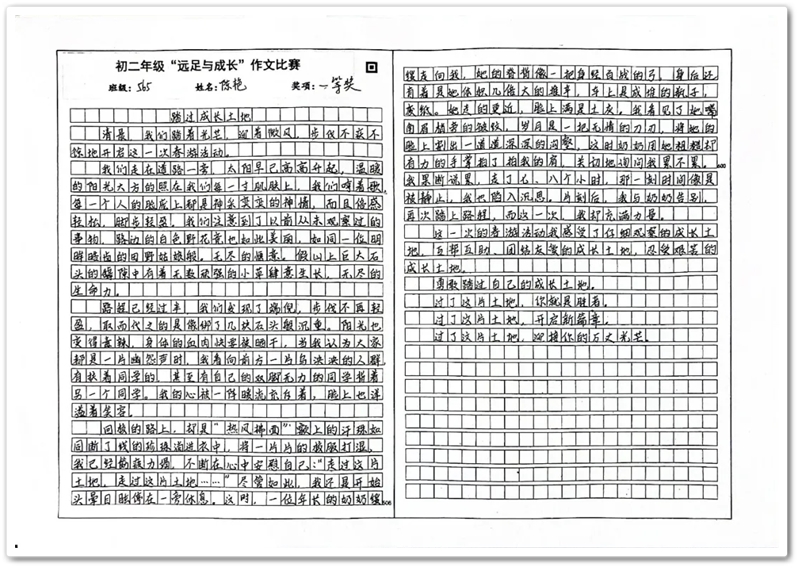 初二年级“远足与成长”作文比赛
班级：565 姓名：陈艳 奖项：一等奖
踏过成长土地
清晨，我们踏着光芒，迎着微风，步伐不获不
惊地开启这一次春游活动。
我们走在道路一旁，太阳早已高高升起，温暖
的阳光大方的照在我们每一寸肌肤上，我们哼着歌，
每一个人的脸庞上都是神采奕奕的神情，而且倍感
轻松，脚步轻盈。我们注意到了以前从未观察过的
事物，路边的白色野花竟也如此美丽，如同一位明
眸皓齿的田野姑娘般。无尽的惬意。假山上巨大石
头的缝隙中有着无数顽强的小草肆意生长，无尽的
生命力。
路程已经过半，我们发现了端倪，步伐不再轻
盈，取而代之的是像绑了几块石头般沉重。阳光也
变得毒辣，身体的血肉快要被晒干，当我认为大家
都是一片幽怨声时，我看向前方一片乌泱泱的人群，
有扶着同学的，甚至有自己的双脚无力的同学搭着
另一个同学。我的心被一阵暖流充斥着，脸上也洋
溢着笑容。
回校的路上，却是“热风拂面”额上的汗珠如
同断了线的珍珠淌进衣中，将一片片的校服打湿，
我已经筋疲力竭，不断在心中安慰自己：“走过这片
土地，走过这片土地……”尽管如此，我还是开始
头晕目眩停在一旁休息。这时，一位年长的奶奶缓
慢走向我，她的脊背像一把身经百战的弓，身后还
有着是她体积几倍大的推车，车上是成堆的瓶子，
灰纸。她走的更近，脸上满是土灰，我看见了她嘴
角眉梢旁的皱纹，岁月是一把无情的刀刃，将她的
脸上割出一道道深深的沟壑，这时奶奶用她粗糙却
有力的手掌拍了拍我的肩，关切地询问我累不累。
600
我果断说累，走了七、八个小时，那一刻时间像是
被静止，我也陷入沉思。片刻后，我与奶奶告别，
再次踏上路程，而这一次，我却充满力量。
这一次的春游活动我感受了仔细观察的成长土
地，互帮互助、团结友爱的成长土地，忍受艰苦的
成长土地。
勇敢踏过自己的成长土地。
过了这片土地，你就是胜者。
过了这片土地，开启新篇章。
过了这片土地，迎接你的万丈光芒。